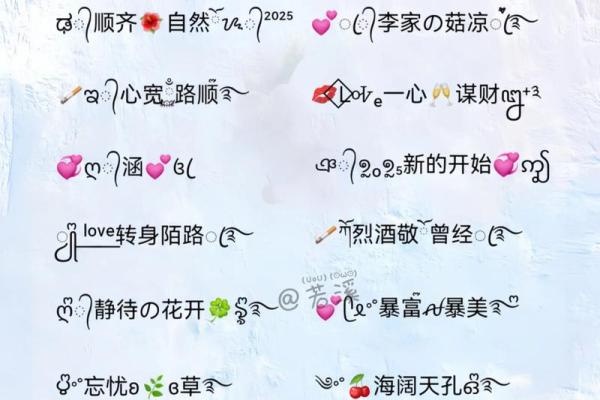 顺齐🌺自然 2025
💕李家の菇凉
🚬心宽 路顺
💋Love一心🥂谋财
💞ღ᭄涵💕
2025新的开始💞
love转身陌路
🚬烈酒敬 曾经
ღ᭄静待の花开🍀
💕°暴富 暴美
@若溪
°忘忧ʚ🌿ɞ草
°🍒海阔天孔